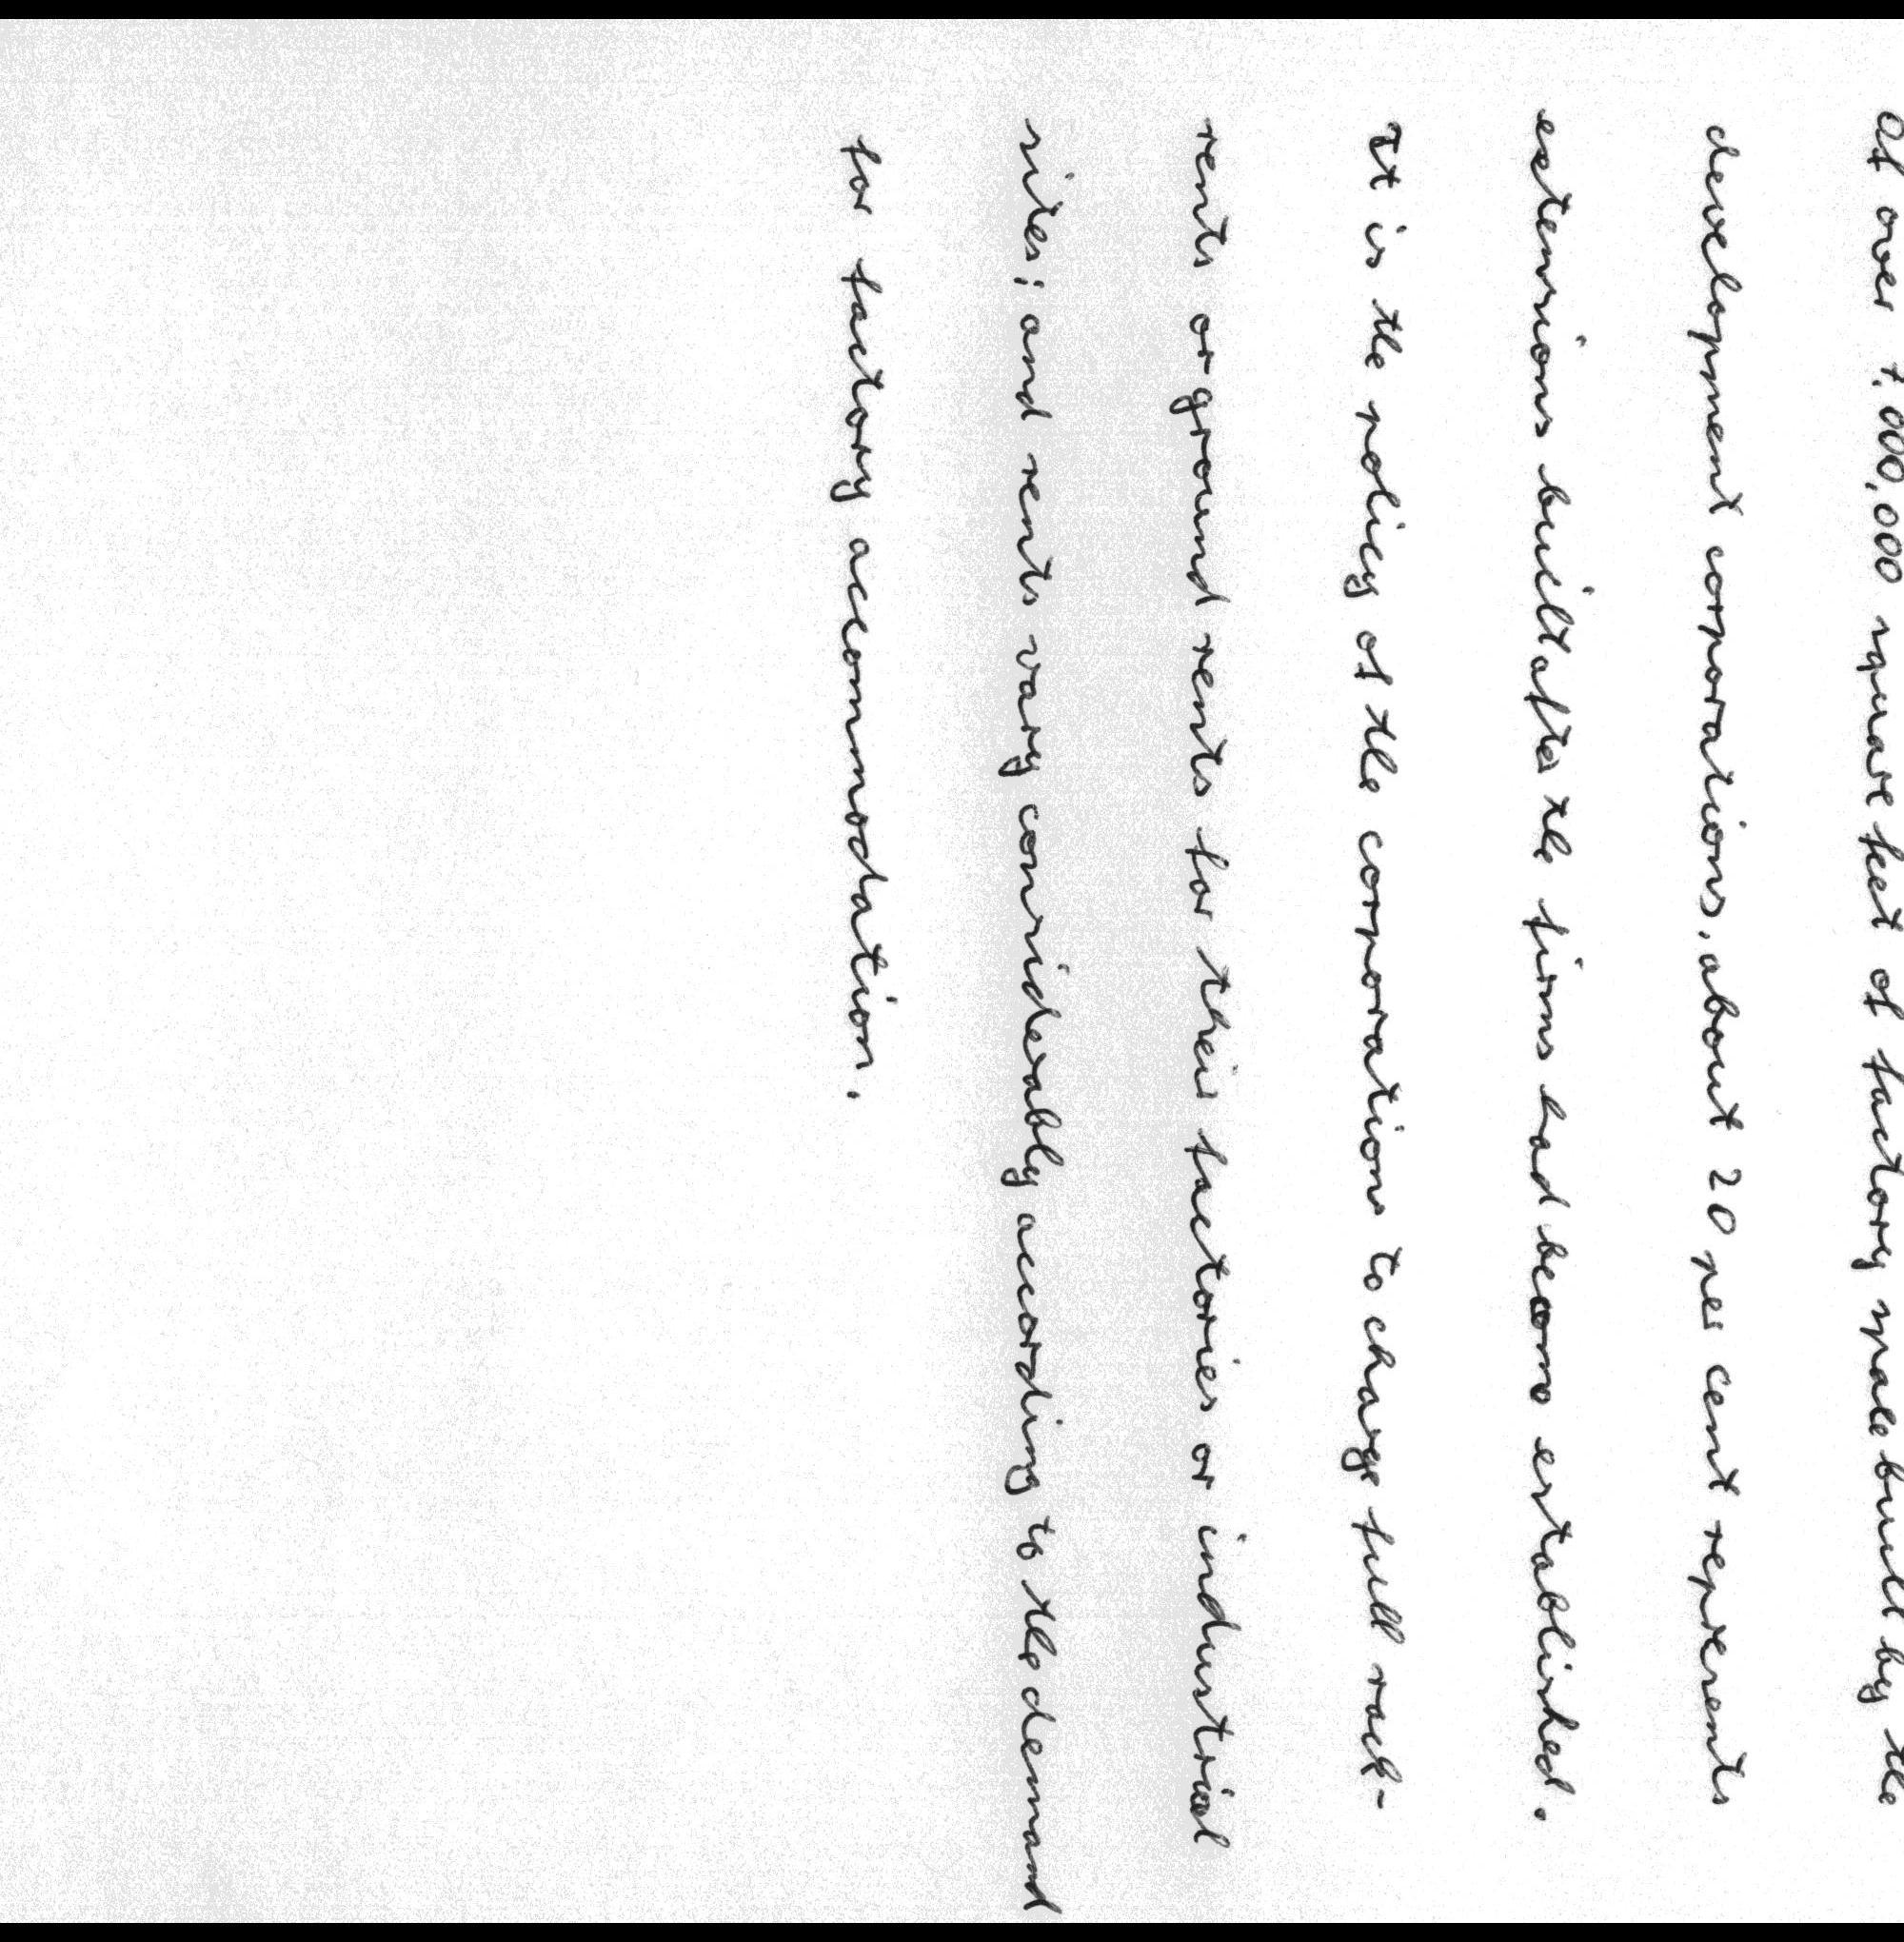 Of over 7,000,000 square feet of factory space built by the
development corporations, about 20 per cent represents
extensions built after the firms had become established.
It is the policy of the corporations to charge full rack-
rents or ground rents for their factories or industrial
sites; and rents vary considerably according to the demand
for factory accommodation.